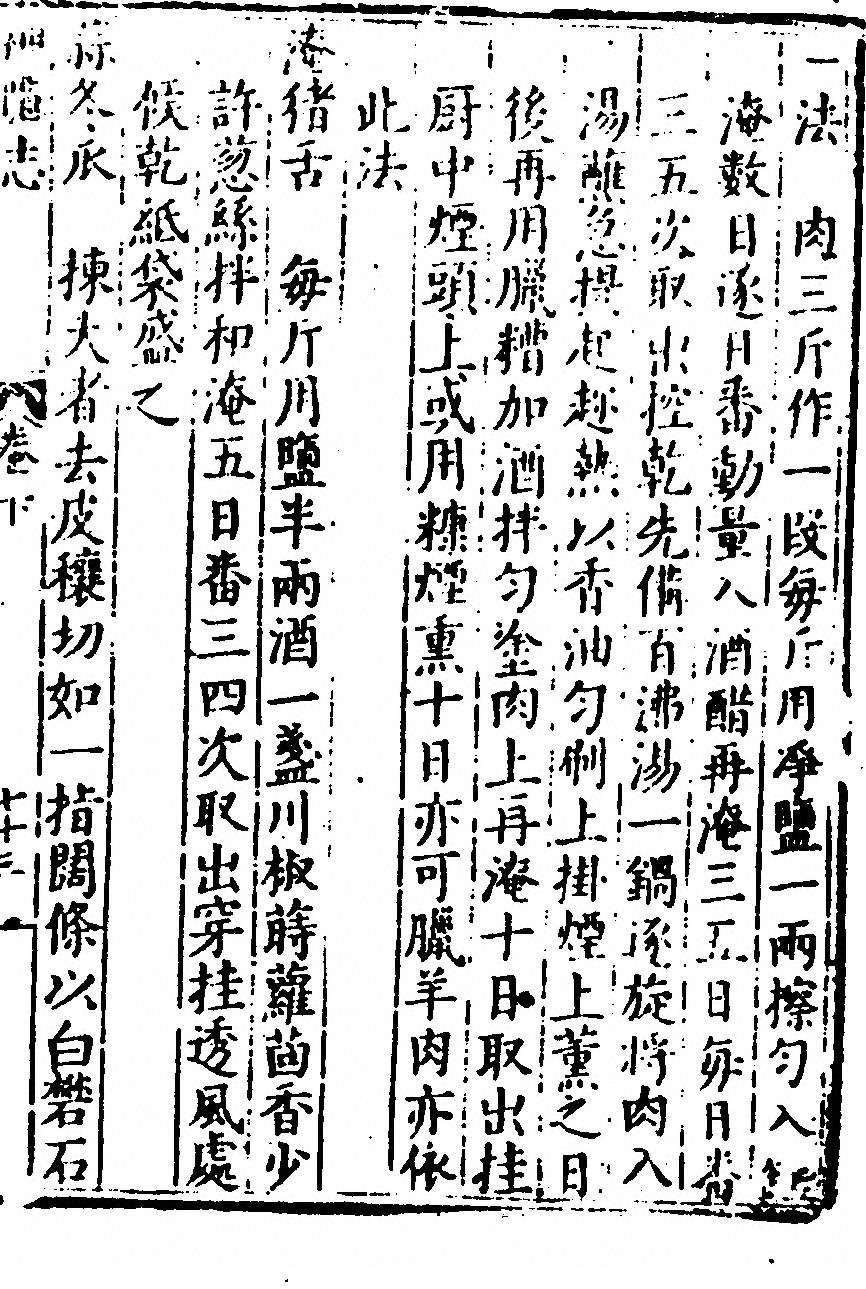 一法　肉三斤作一段每斤用淨鹽一兩擦勻入缸
淹數日逐日番動量入酒醋再淹三五日每日番
三五次取出控乾先備百沸湯一鍋逐旋將肉入
湯蘸急提起趁熱以香油勻刷上掛煙上薰之日
後再用臘糟加酒拌勻塗肉上再淹十日取出挂
厨中煙頭上或用糠煙熏十日亦可臘羊肉亦依
此法
淹猪舌　每斤用鹽半兩酒一盞川椒蒔蘿茴香少
許葱絲拌和淹五日番三四次取出穿挂透風處
候乾紙袋盛之
蒜冬瓜　揀大者去皮穰切如一指闊條以白礬石
志
卷下
七十